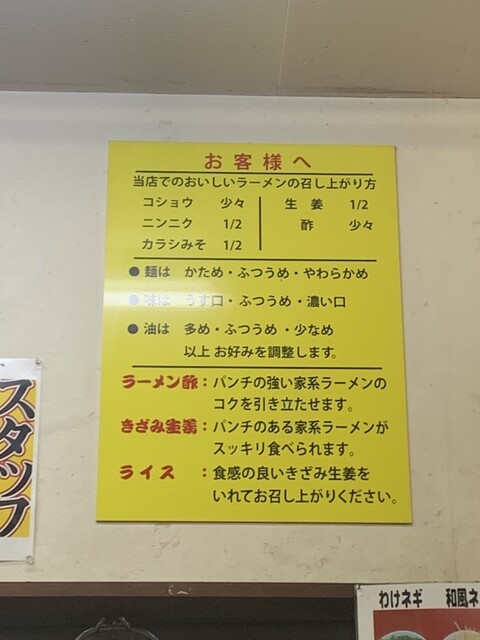 お客様へ
当店でのおいしいラーメンの召し上がり方
コショウ 少々
ニンニク 1/2
カラシみそ 1/2
生姜 1/2
酢 少々
● 麺は かため・ふつうめ・やわらかめ
● 味は うす口・ふつうめ・濃い口
● 油は 多め・ふつうめ・少なめ
以上 お好みを調整します。
ラーメン酢：パンチの強い家系ラーメンの
コクを引き立たせます。
きざみ生姜：パンチのある家系ラーメンが
スッキリ食べられます。
ライス：食感の良いきざみ生姜を
いれてお召し上がりください。
スタッフ
わけネギ 和風ネ